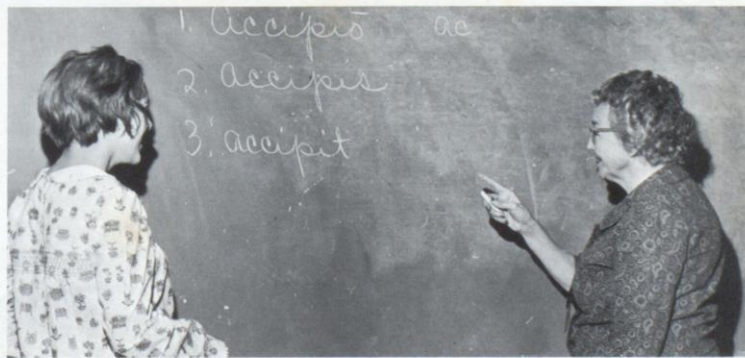 1. Accipiō ac
2. accipis
3. accipit